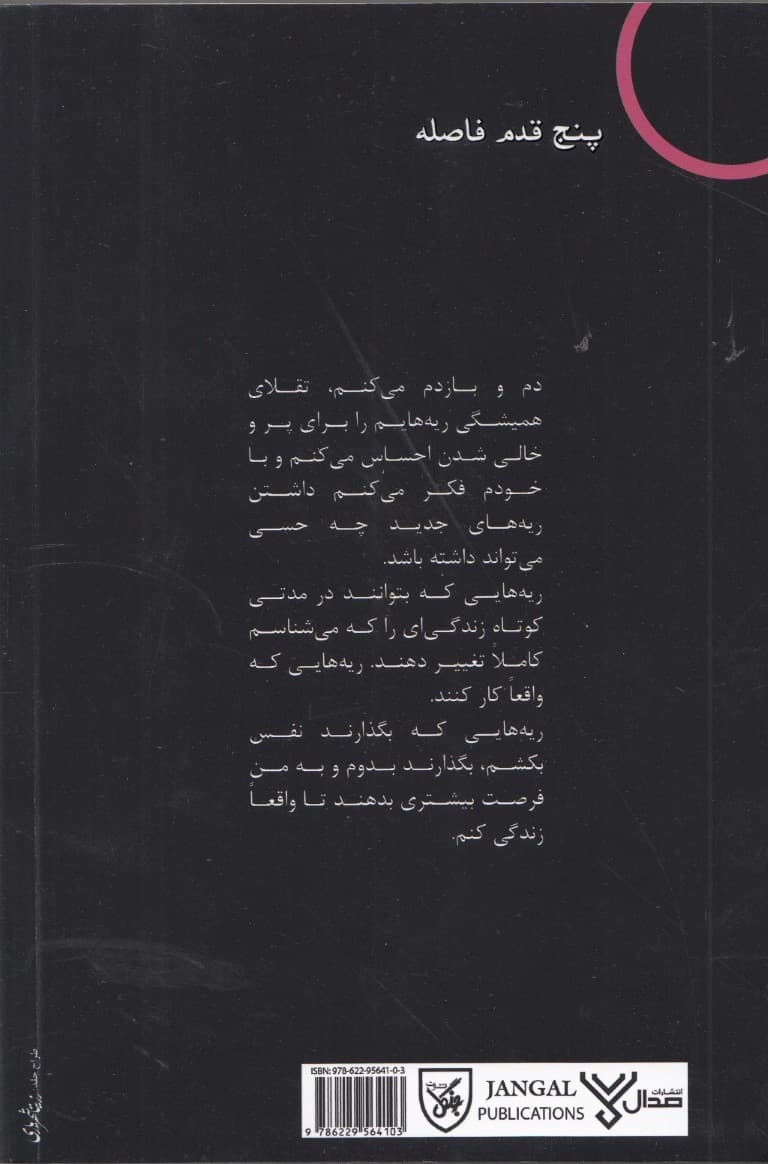 پنج قدم فاصله
دم و بازدم می‌کنم، تقلای
همیشگی ریه‌هایم را برای پر و
خالی شدن احساس می‌کنم و با
خودم فکر می‌کنم داشتن
ریه‌های جدید چه حسی
می‌تواند داشته باشد.
ریه‌هایی که بتوانند در مدتی
کوتاه زندگی‌ای را که می‌شناسم
کاملاً تغییر دهند. ریه‌هایی که
واقعاً کار کنند.
ریه‌هایی که بگذارند نفس
بکشم، بگذارند بدوم و به من
فرصت بیشتری بدهند تا واقعاً
زندگی کنم.
طراح جلد:
ISBN: 978-622-95641-0-3
9 786229 564103
جنگل
JANGAL
PUBLICATIONS
انتشارات
صدال